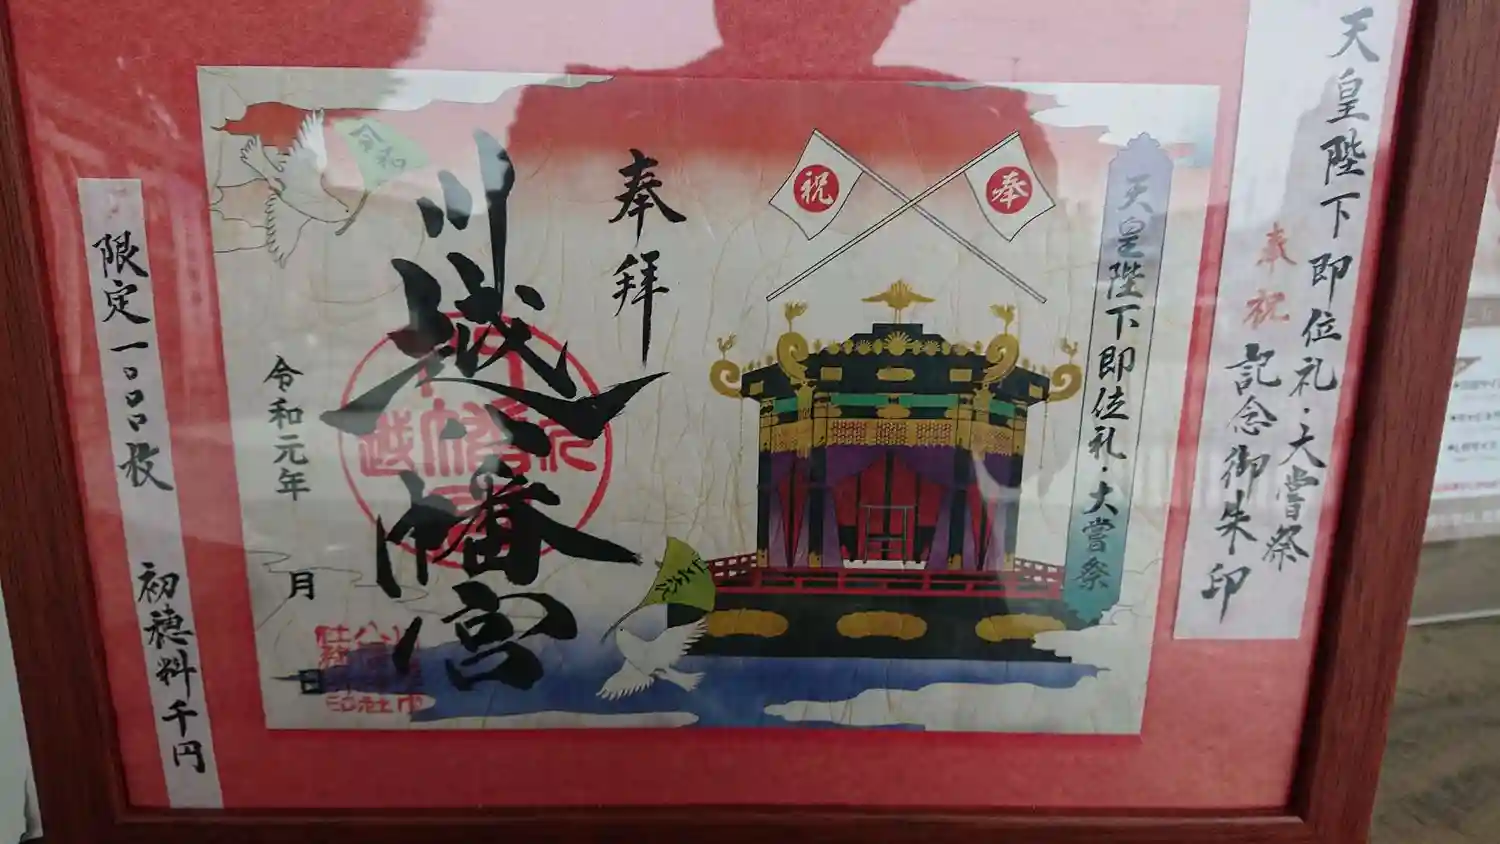 天皇陛下即位礼・大嘗祭
奉祝 記念御朱印
天皇陛下即位礼・大嘗祭
奉
祝
奉拝
川越八幡宮
令和元年
月
日
令和
限定一〇〇〇枚 初穂料千円